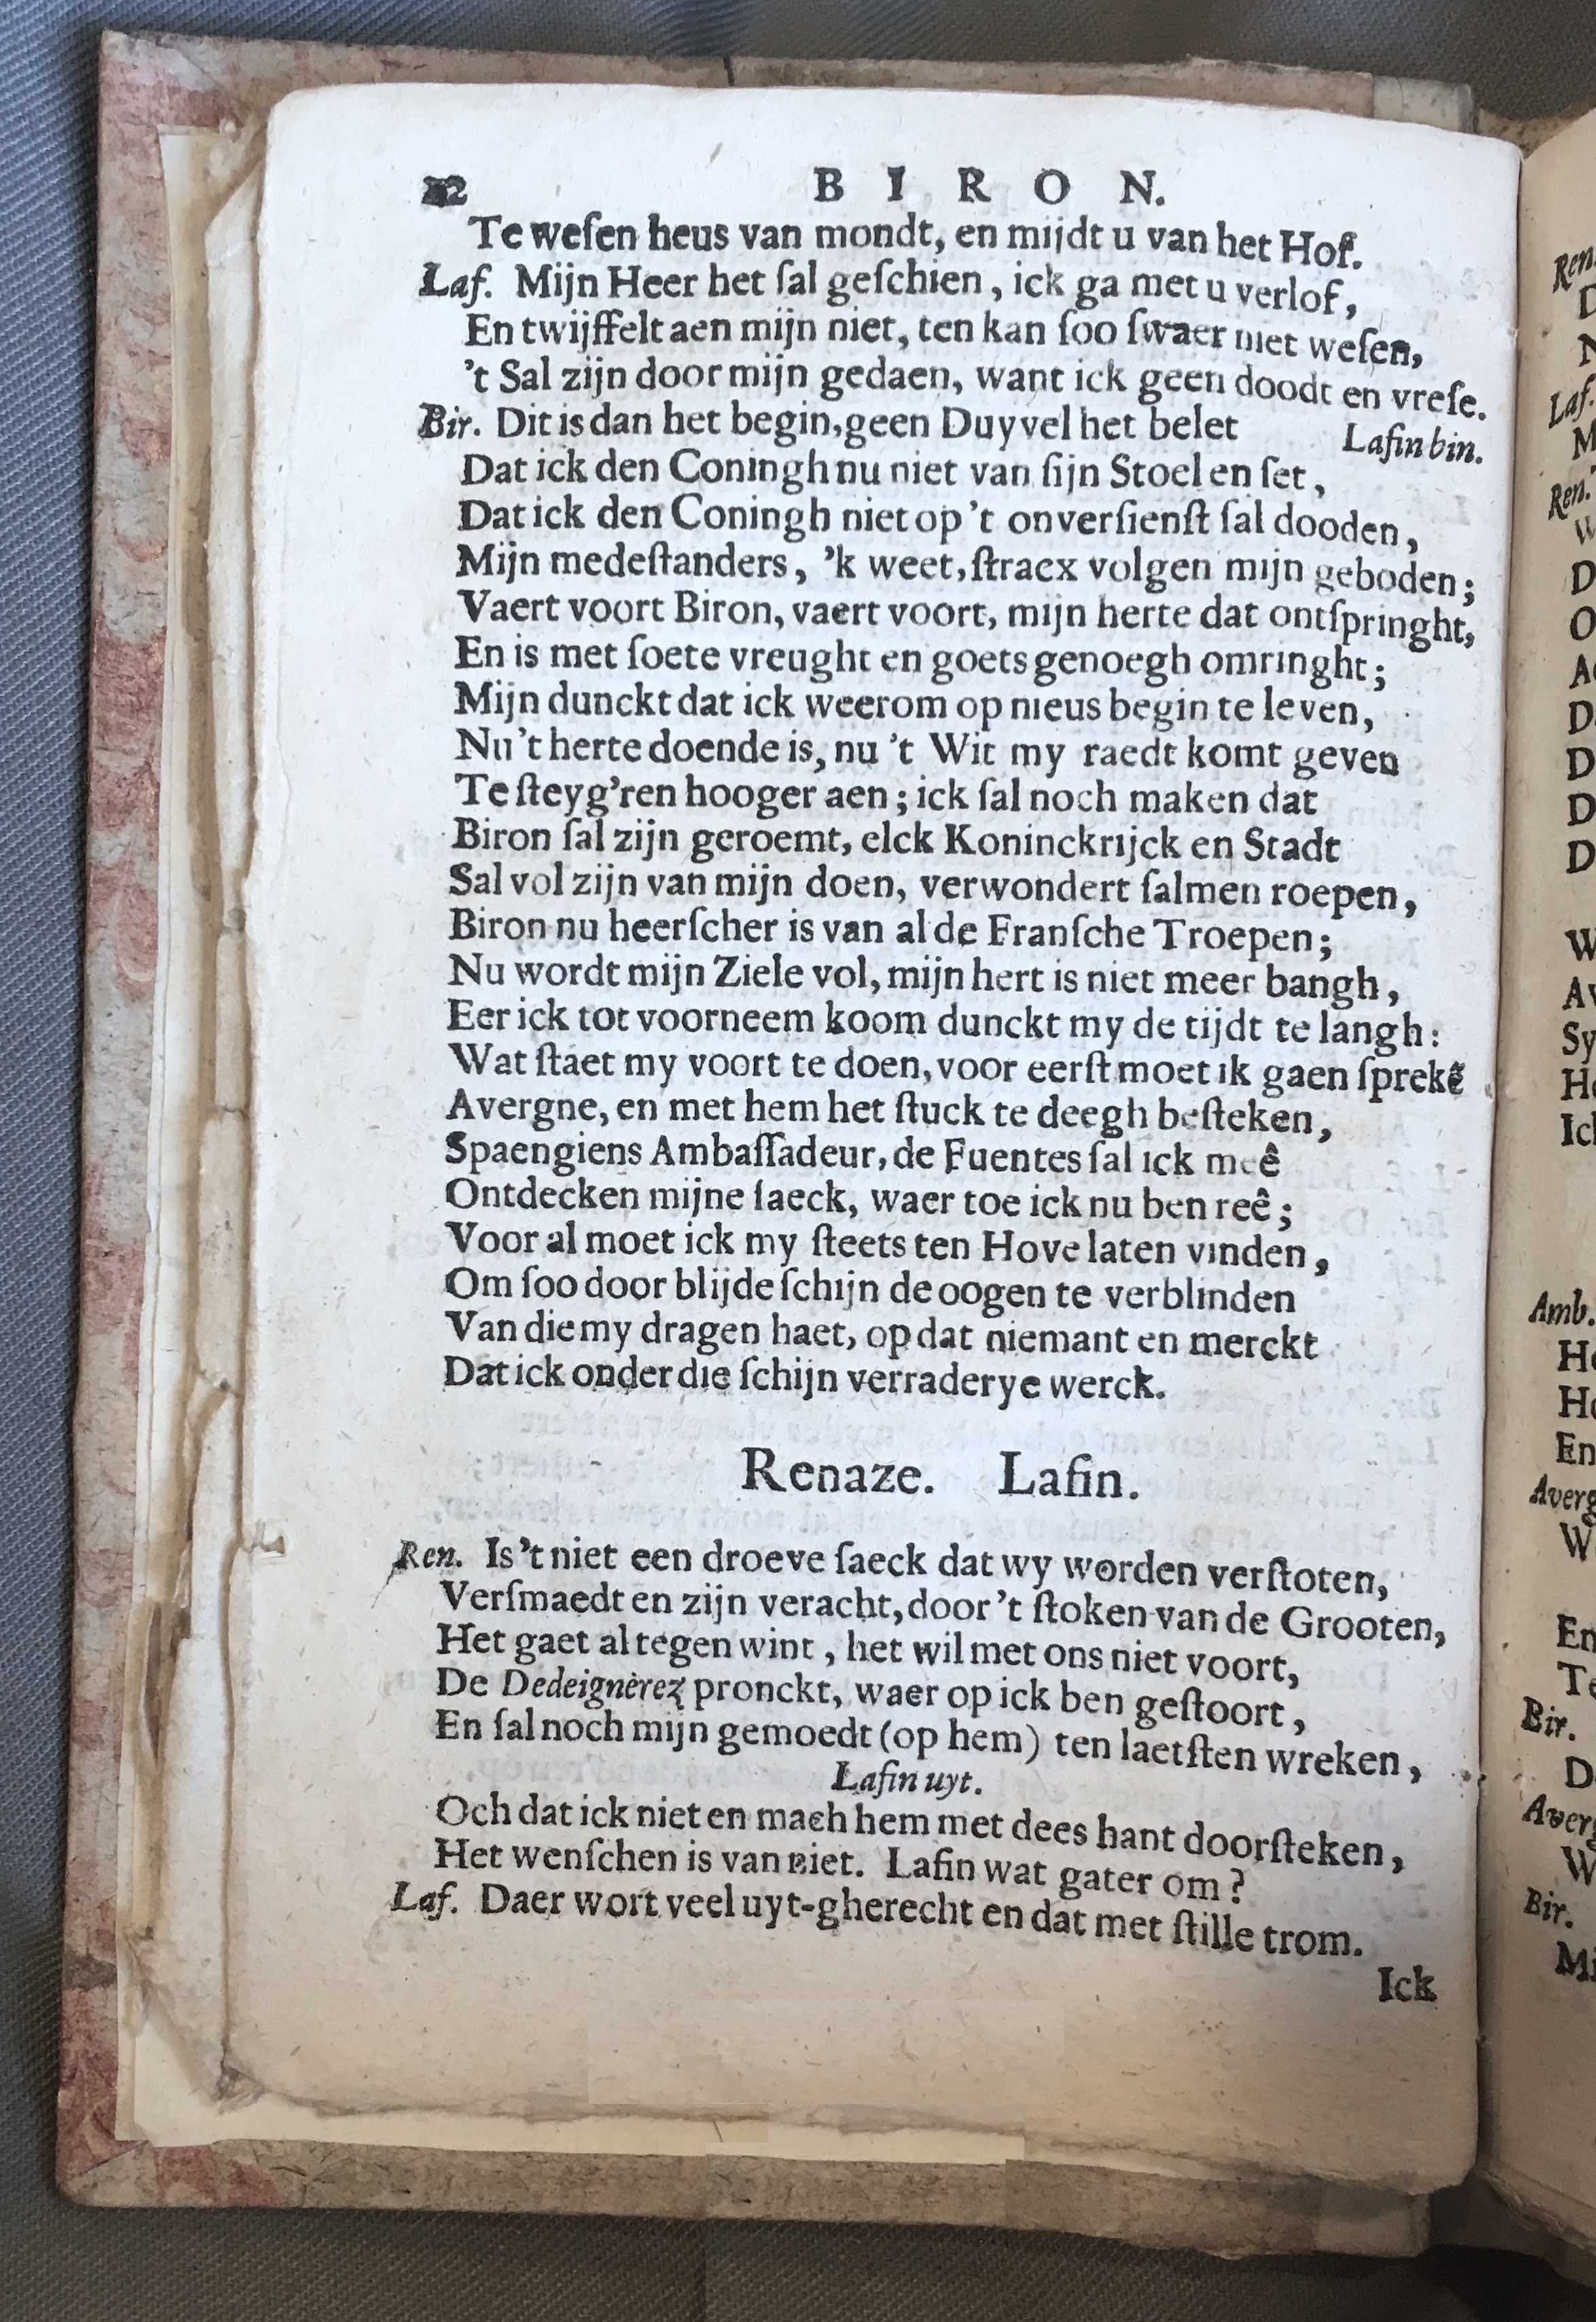 22 BIRON.
Te weſen heus van mondt, en mijdt u van het Hof.
Laf. Mijn Heer het ſal geſchien, ick ga met u verlof,
En twijffelt aen mijn niet, ten kan ſoo ſwaer niet weſen,
't Sal zijn door mijn gedaen, want ick geen doodt en vreſe.
Bir. Dit is dan het begin, geen Duyvel het belet
Laſin bin.
Dat ick den Coningh nu niet van ſijn Stoel en ſet,
Dat ick den Coningh niet op 't onverſienſt ſal dooden,
Mijn medeſtanders, 'k weet, ſtracx volgen mijn geboden;
Vaert voort Biron, vaert voort, mijn herte dat ontſpringht,
En is met ſoete vreught en goets genoegh omringht;
Mijn dunckt dat ick weerom op nieus begin te leven,
Nu 't herte doende is, nu 't Wit my raedt komt geven
Te ſteyg'ren hooger aen; ick ſal noch maken dat
Biron ſal zijn geroemt, elck Koninckrijck en Stadt
Sal vol zijn van mijn doen, verwondert ſalmen roepen,
Biron nu heerſcher is van al de Franſche Troepen;
Nu wordt mijn Ziele vol, mijn hert is niet meer bangh,
Eer ick tot voorneem koom dunckt my de tijdt te langh:
Wat ſtaet my voort te doen, voor eerſt moet ik gaen ſprekẽ
Avergne, en met hem het ſtuck te deegh beſteken,
Spaengiens Ambaſſadeur, de Fuentes ſal ick meê
Ontdecken mijne ſaeck, waer toe ick nu ben reê;
Voor al moet ick my ſteets ten Hove laten vinden,
Om ſoo door blijde ſchijn de oogen te verblinden
Van die my dragen haet, op dat niemant en merckt
Dat ick onder die ſchijn verraderye werck.
Renaze. Laſin.
Ren. Is 't niet een droeve ſaeck dat wy worden verſtoten,
Verſmaedt en zijn veracht, door 't ſtoken van de Grooten,
Het gaet al tegen wint, het wil met ons niet voort,
De Dedeignèrez pronckt, waer op ick ben geſtoort,
En ſal noch mijn gemoedt (op hem) ten laetſten wreken,
Laſin uyt.
Och dat ick niet en mach hem met dees hant doorſteken,
Het wenſchen is van niet. Laſin wat gater om?
Laf. Daer wort veel uyt-gherecht en dat met ſtille trom.
Ick